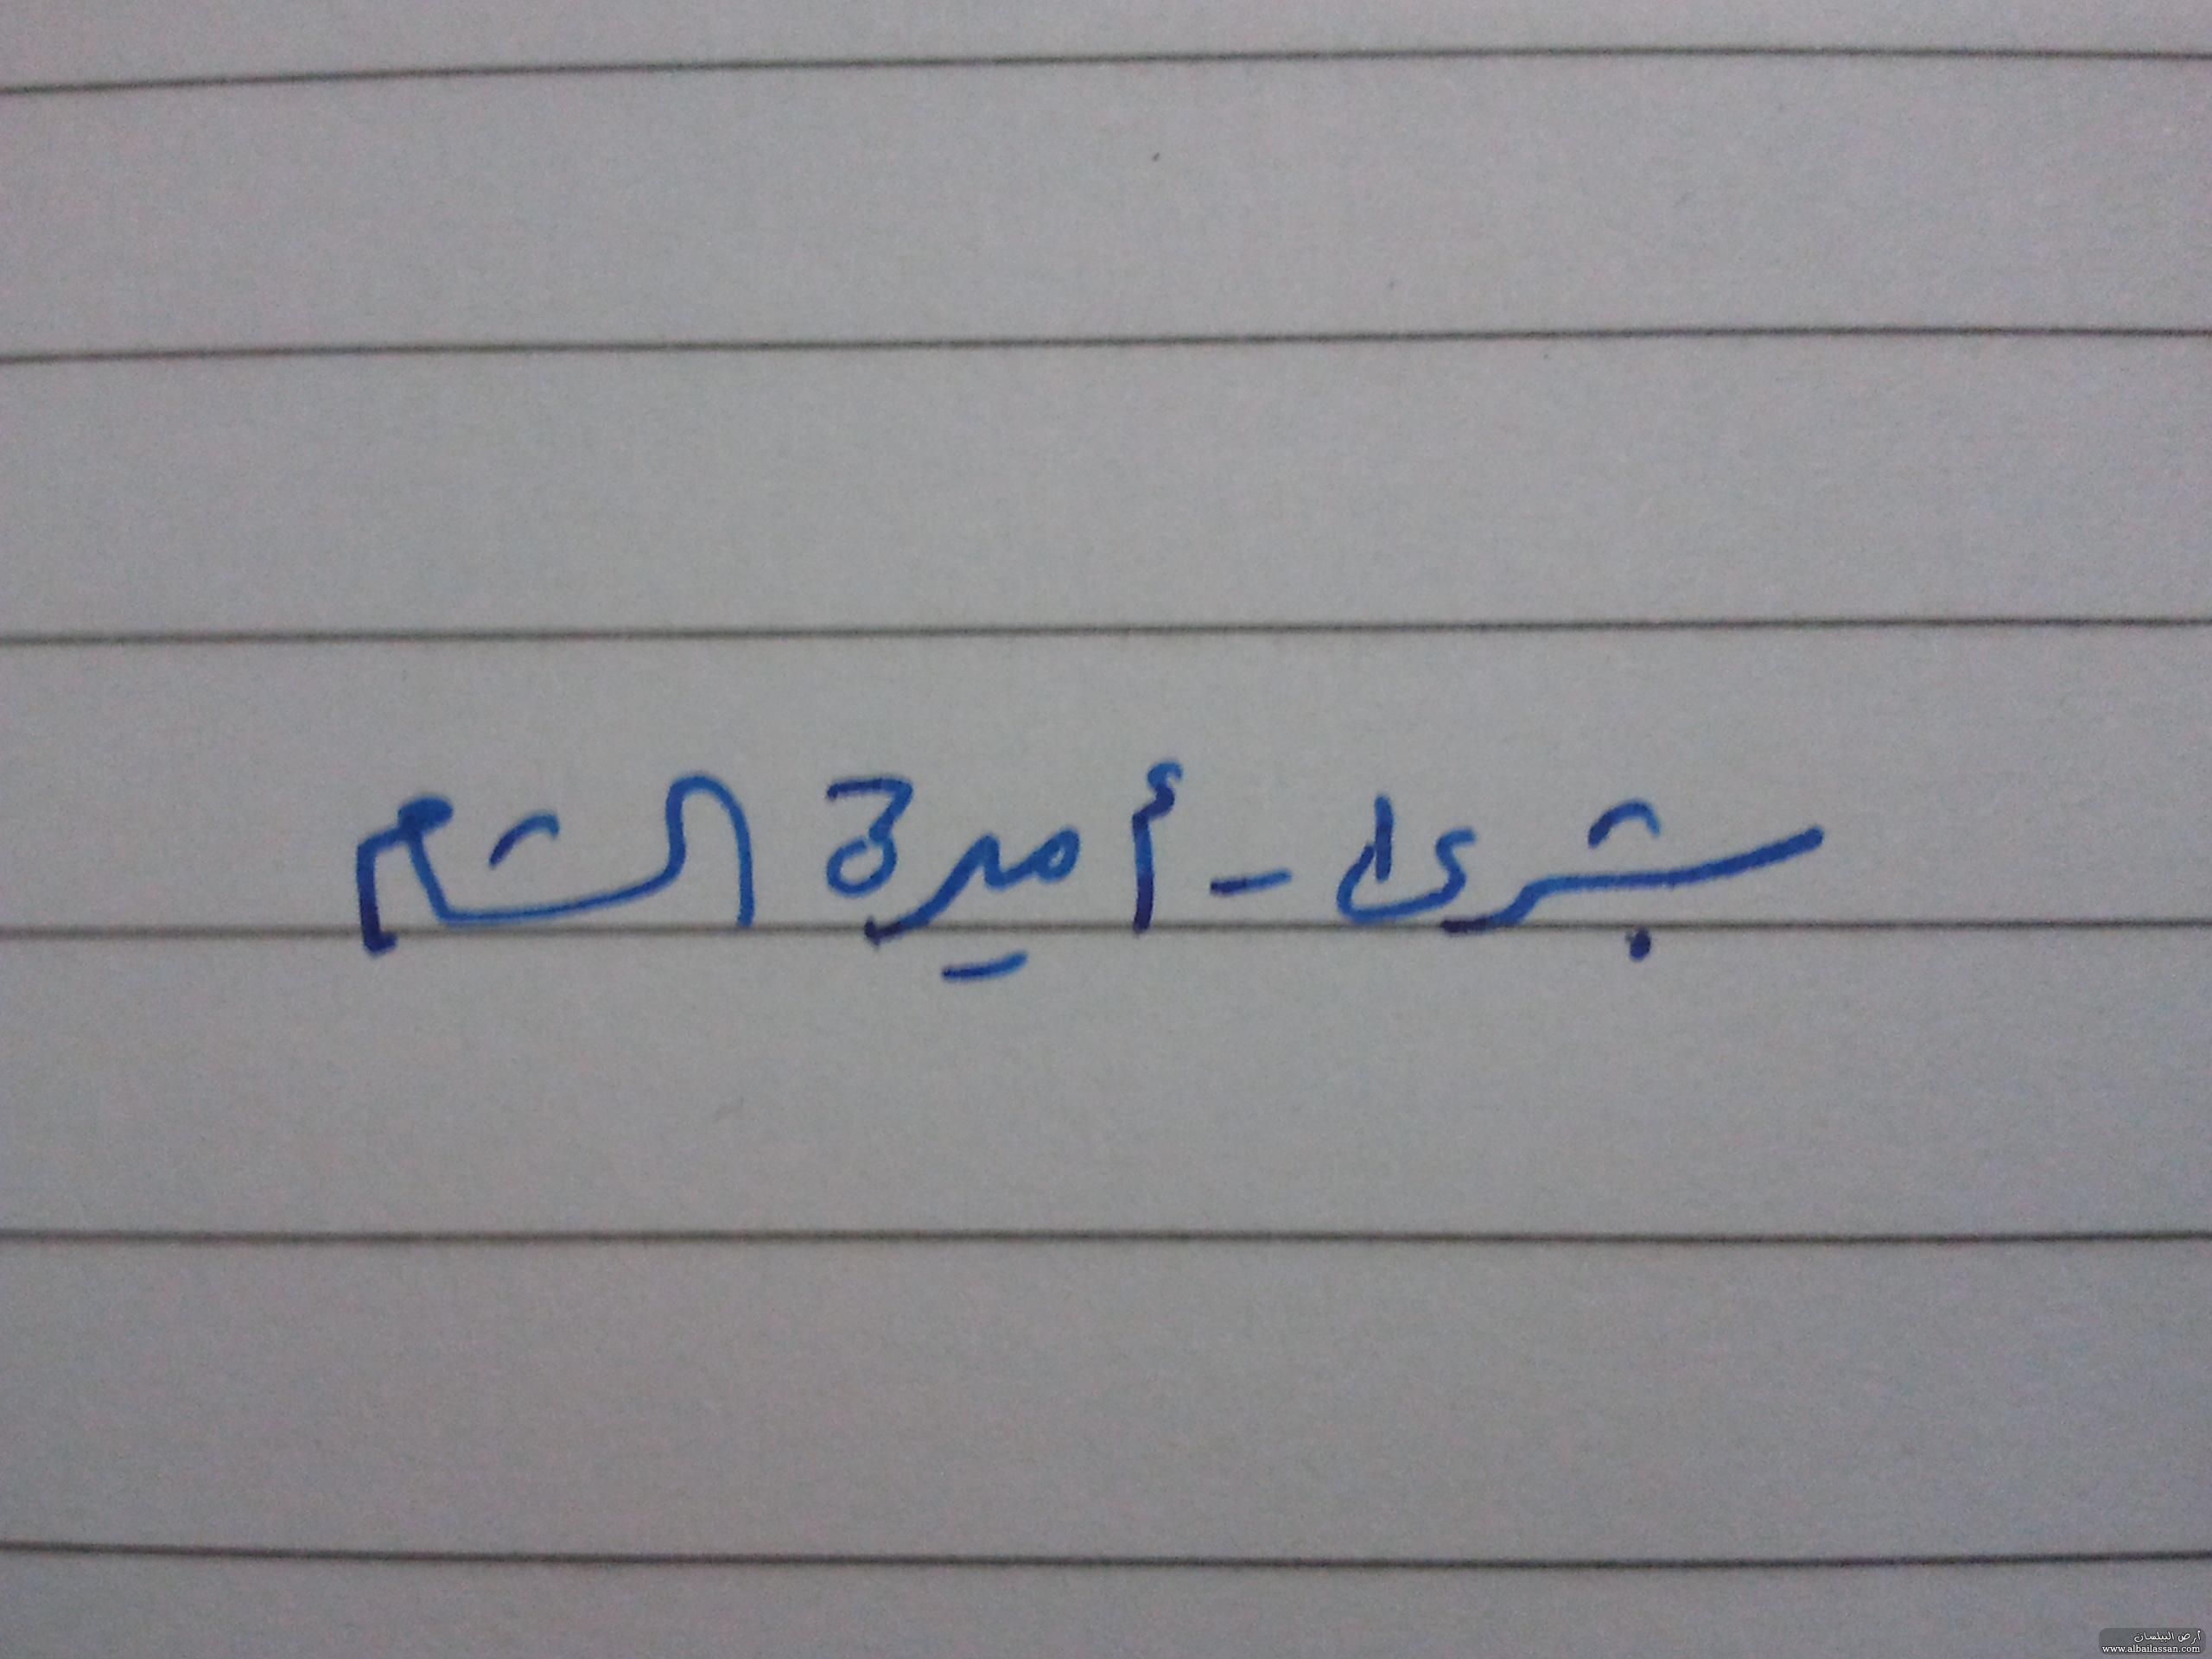 بشرى - أميرة الشام
أرض البيلسان
www.albailassan.com